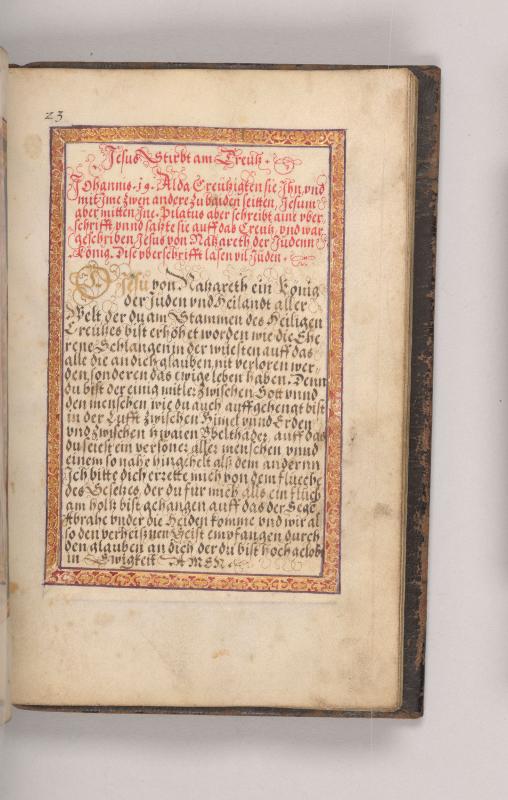 23
Jesus Stirbt am Creutz.
Johannis. 19. Alda Creutzigten sie Ihn, vnd
mit Ime zwen andere zu baiden seitten, Jesum
aber mitten Inn. Pilatus aber schreibt aine vber-
schrifft vnnd satzte sie auff das Creutz, vnd war
geschriben Jesus von Natzareth der Judenn
König. Dise vberschrifft lasen vil Juden.
O Jesu von Natzareth ein König
der Juden vnd Heilandt aller
Welt der du am Stammen des Heiligen
Creutzes bist erhöhet worden wie die Ehe
rene Schlangen in der wüesten auff das
alle die an dich glauben nit verloren wer-
den, sonderen das ewige leben haben. Denn
du bist der einig mitler zwischen Gott vnnd
den menschen wie du auch auffgehengt bist
in der Lufft zwischen Himel vnnd Erden
vnd zwischen zwaien Vbelthäder, auff das
du seiest ein versöner aller menschen vnnd
einem so nahe hingehelt alß dem andernn
Ich bitte dich errette mich von dem flueche
des Gesetzes, der du für mich alls ein fluch
am holtz bist gehangen auff das der Sege
Abrahe vnder die Heiden komme vnd wir al
so den verheißnen Geist empfangen durch
den glauben an dich der du bist hoch gelobt
in Ewigkeit AMEN.